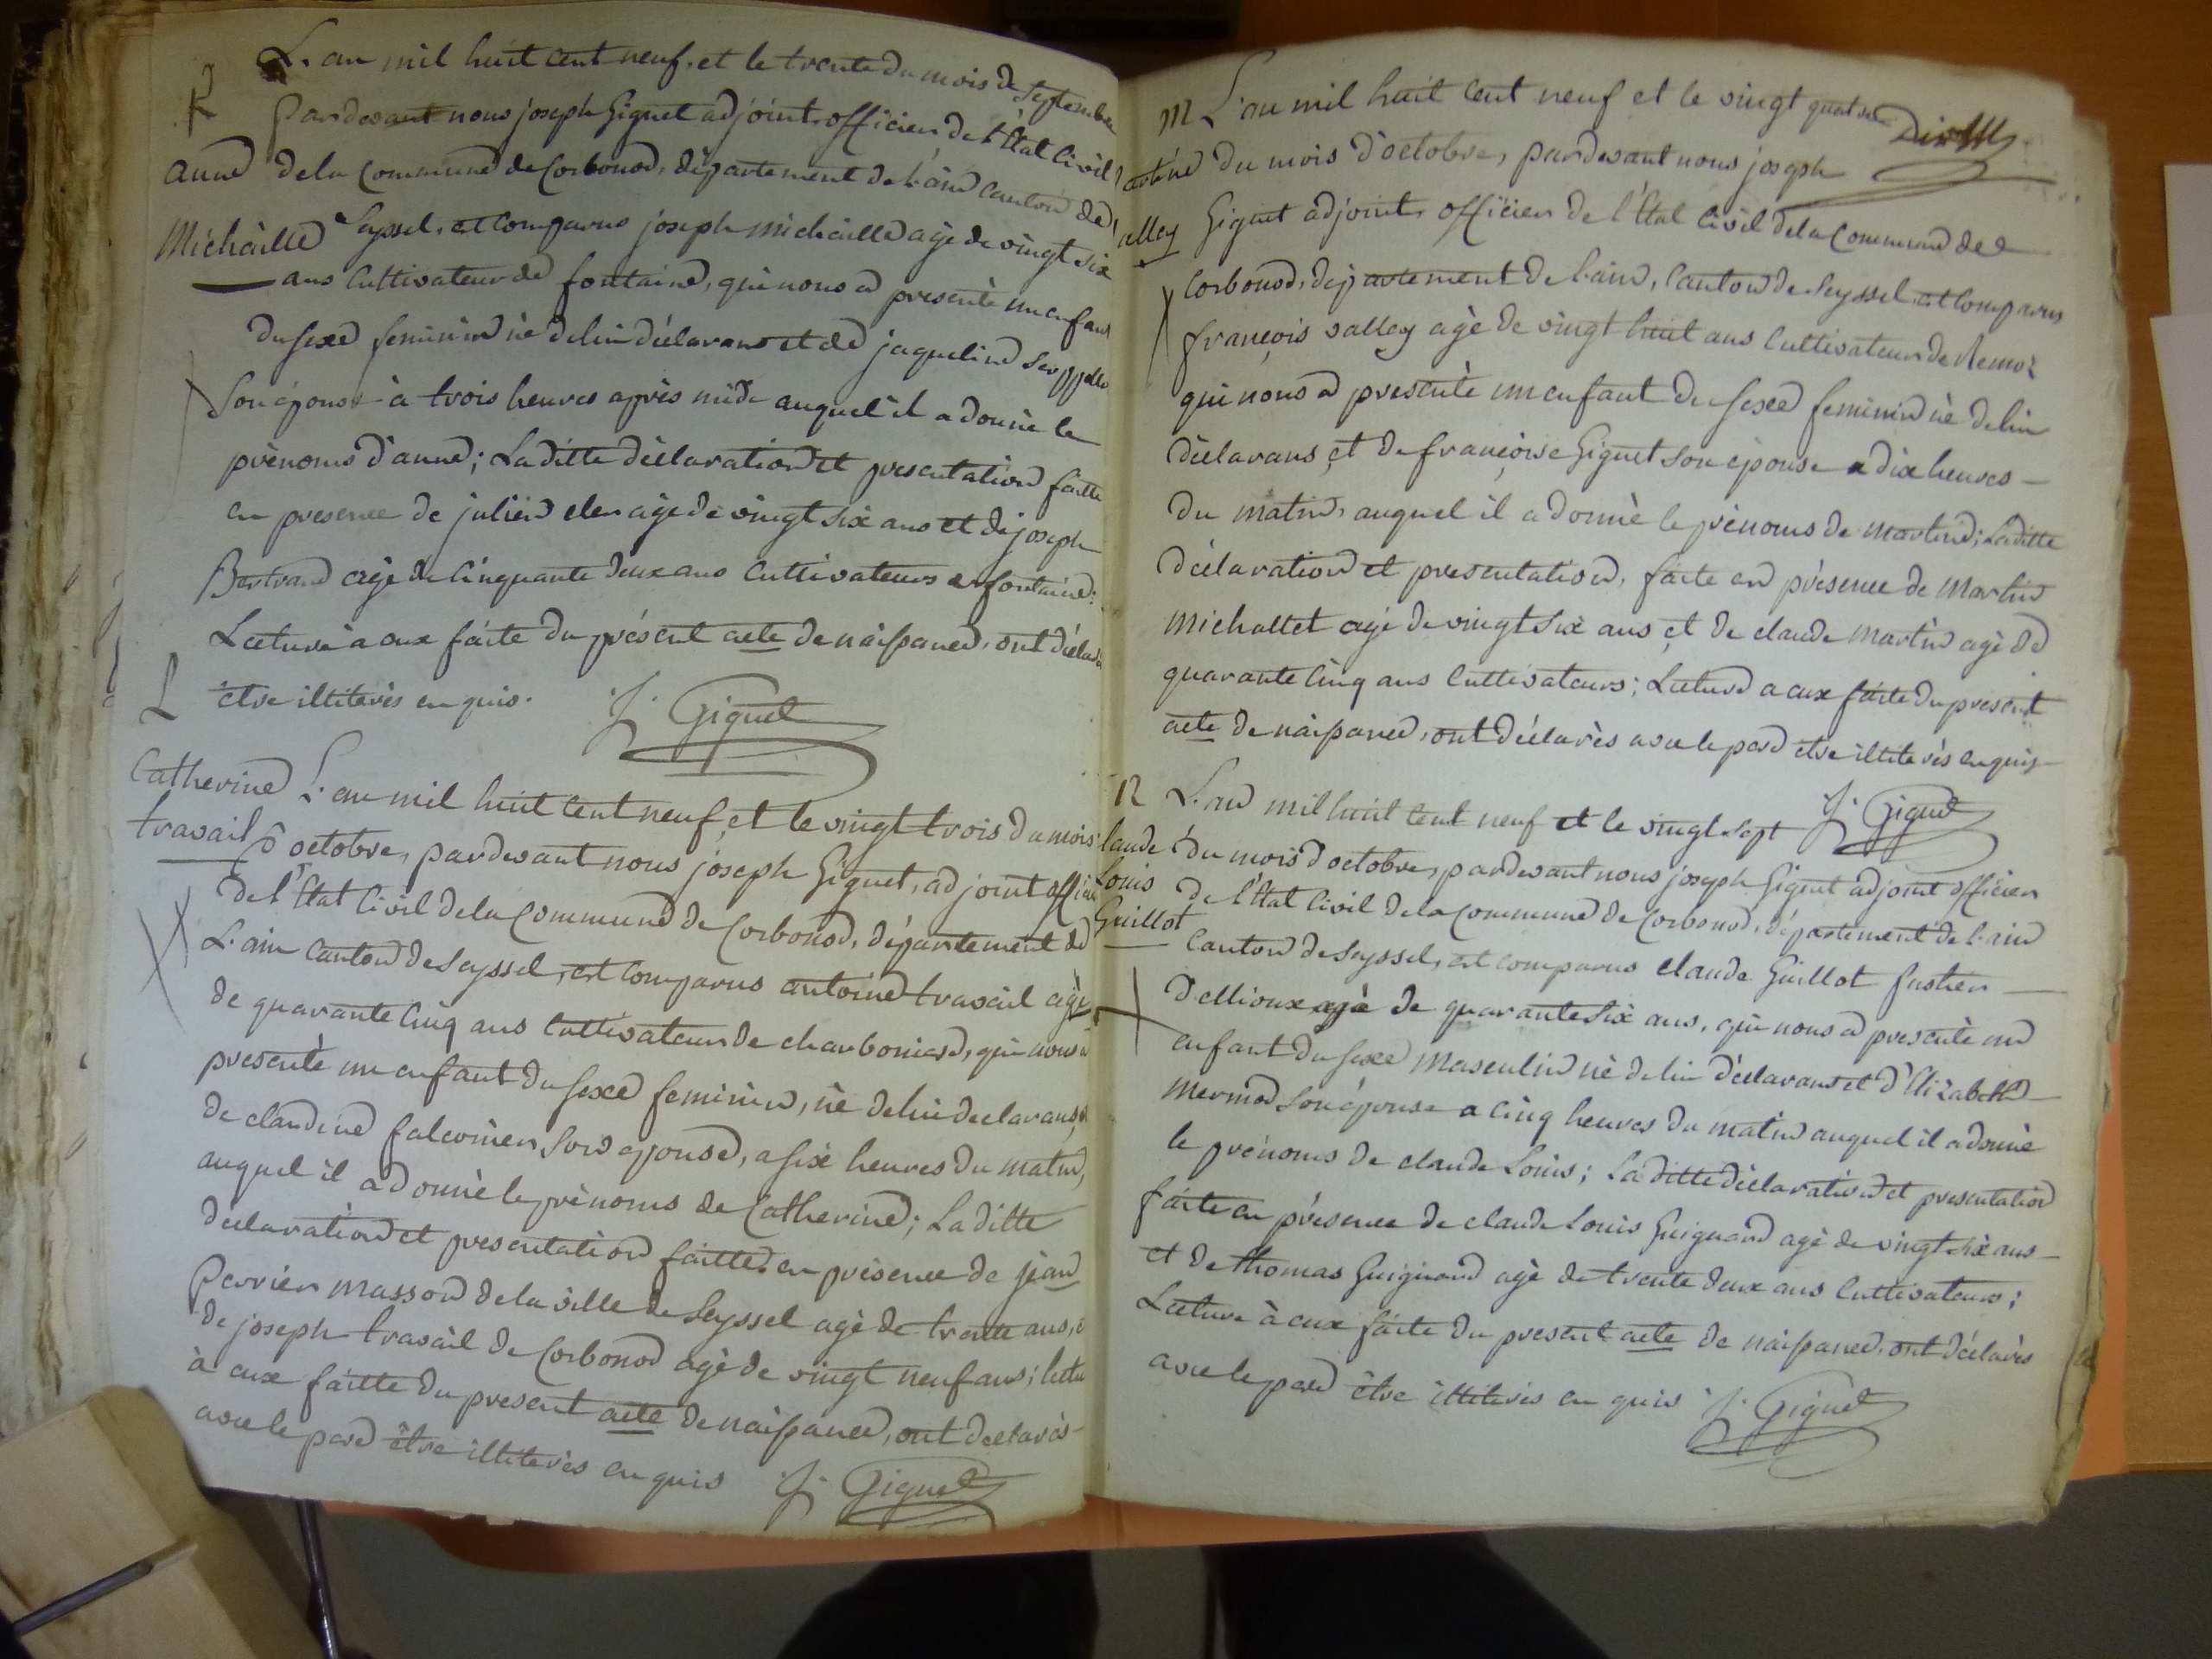 K
L'an mil huit cent neuf et le trente du mois de septembre
pardevant nous joseph Giguet adjoint officier de l'Etat Civil
anne de la Commune de Corbonod, département de l'ain canton de
Michaille Seyssel, est comparus joseph michaille agé de vingt six
ans Cultivateur de fontaine, qui nous a presenté un enfant
du sexe feminin né de lui déclarans et de jaqueline
son épouse à trois heures après midi auquel il a donné le
prénoms d'anne; La ditte déclaration et presentation faitte
en presence de julien agé de vingt six ans et de joseph
Bertrand agé de Cinquante deux ans Cultivateurs a fontaine;
Lecture à eux faite du présent acte de naissance, ont déclarés
être illiterés enquis. J. Giguet
L
Catherine
travail
L'an mil huit cent neuf et le vingt trois du mois
d'octobre, pardevant nous joseph Giguet, adjoint officier
de l'Etat Civil de la Commune de Corbonod, département de
L'ain Canton de Seyssel, est comparus antoine travail agé
de quarante cinq ans Cultivateur de charbonierd, qui nous a
presenté un enfant du sexe feminin, né de lui declarans, et
de claudine falconier son epouse, a six heures du matin,
auquel il a donné le prénoms de Catherine; La ditte
declaration et presentation faitte en présence de jean
Perrier masson de la ville de Seyssel agé de trente ans, et
de joseph travail de Corbonod agé de vingt neuf ans; lectu
à eux faitte du present acte de naissance, ont declarés
avec le pere être illiterés enquis J. Giguet
M
artine
valley
L'an mil huit cent neuf et le vingt quatre
du mois d'octobre, pardevant nous joseph
Giguet adjoint officier de l'Etat Civil de la Commune de
Corbonod, département de l'ain, Canton de Seyssel est comparus
françois valley agé de vingt huit ans Cultivateur de Remoz
qui nous a presenté un enfant du sexe feminin né de lui
déclarans et de françoise Giguet son épouse a dix heures
du matin, auquel il a donné le prénoms de martine; La ditte
déclaration et presentation, faite en présence de Martin
michallet agé de vingt six ans et de claude Martin agé de
quarante Cinq ans Cultivateurs; Lecture a eux faite du present
acte de naissance, ont déclarés avec le pere être illiterés enquis
J. Giguet
N
laude
Louis
Guillot
L'an mil huit cent neuf et le vingt sept
du mois d'octobre, pardevant nous joseph Giguet adjoint officier
de l'Etat Civil de la Commune de Corbonod, département de l'ain
Canton de Seyssel, est comparus claude Guillot fustier
d'ellioux agé de quarante six ans, qui nous a presenté un
enfant du sexe masculin né de lui déclarant et d'Elizabeth
mermod son épouse a cinq heures du matin auquel il a donné
le prénoms de claude Louis; La ditte déclaration et presentation
faite en présence de claude Louis Guignard agé de vingt six ans
et de thomas Guignard agé de trente deux ans Cultivateurs;
Lecture à eux faite du present acte de naissance, ont déclarés
avec le pere être illiterés enquis J. Giguet